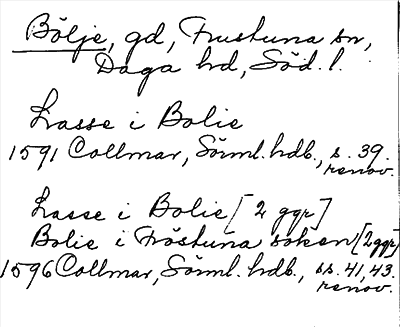 Bölje, gd, Frustuna sn,
Daga hd, Söd. l.
Lasse i Bolie
1591 Collmar, Sörml. hdb., s. 39.
renov.
Lasse i Bolie [2 ggr]
Bolie i Fröstuna soken [2ggr]
1596 Collmar, Sörml. hdb., ss. 41, 43.
renov.